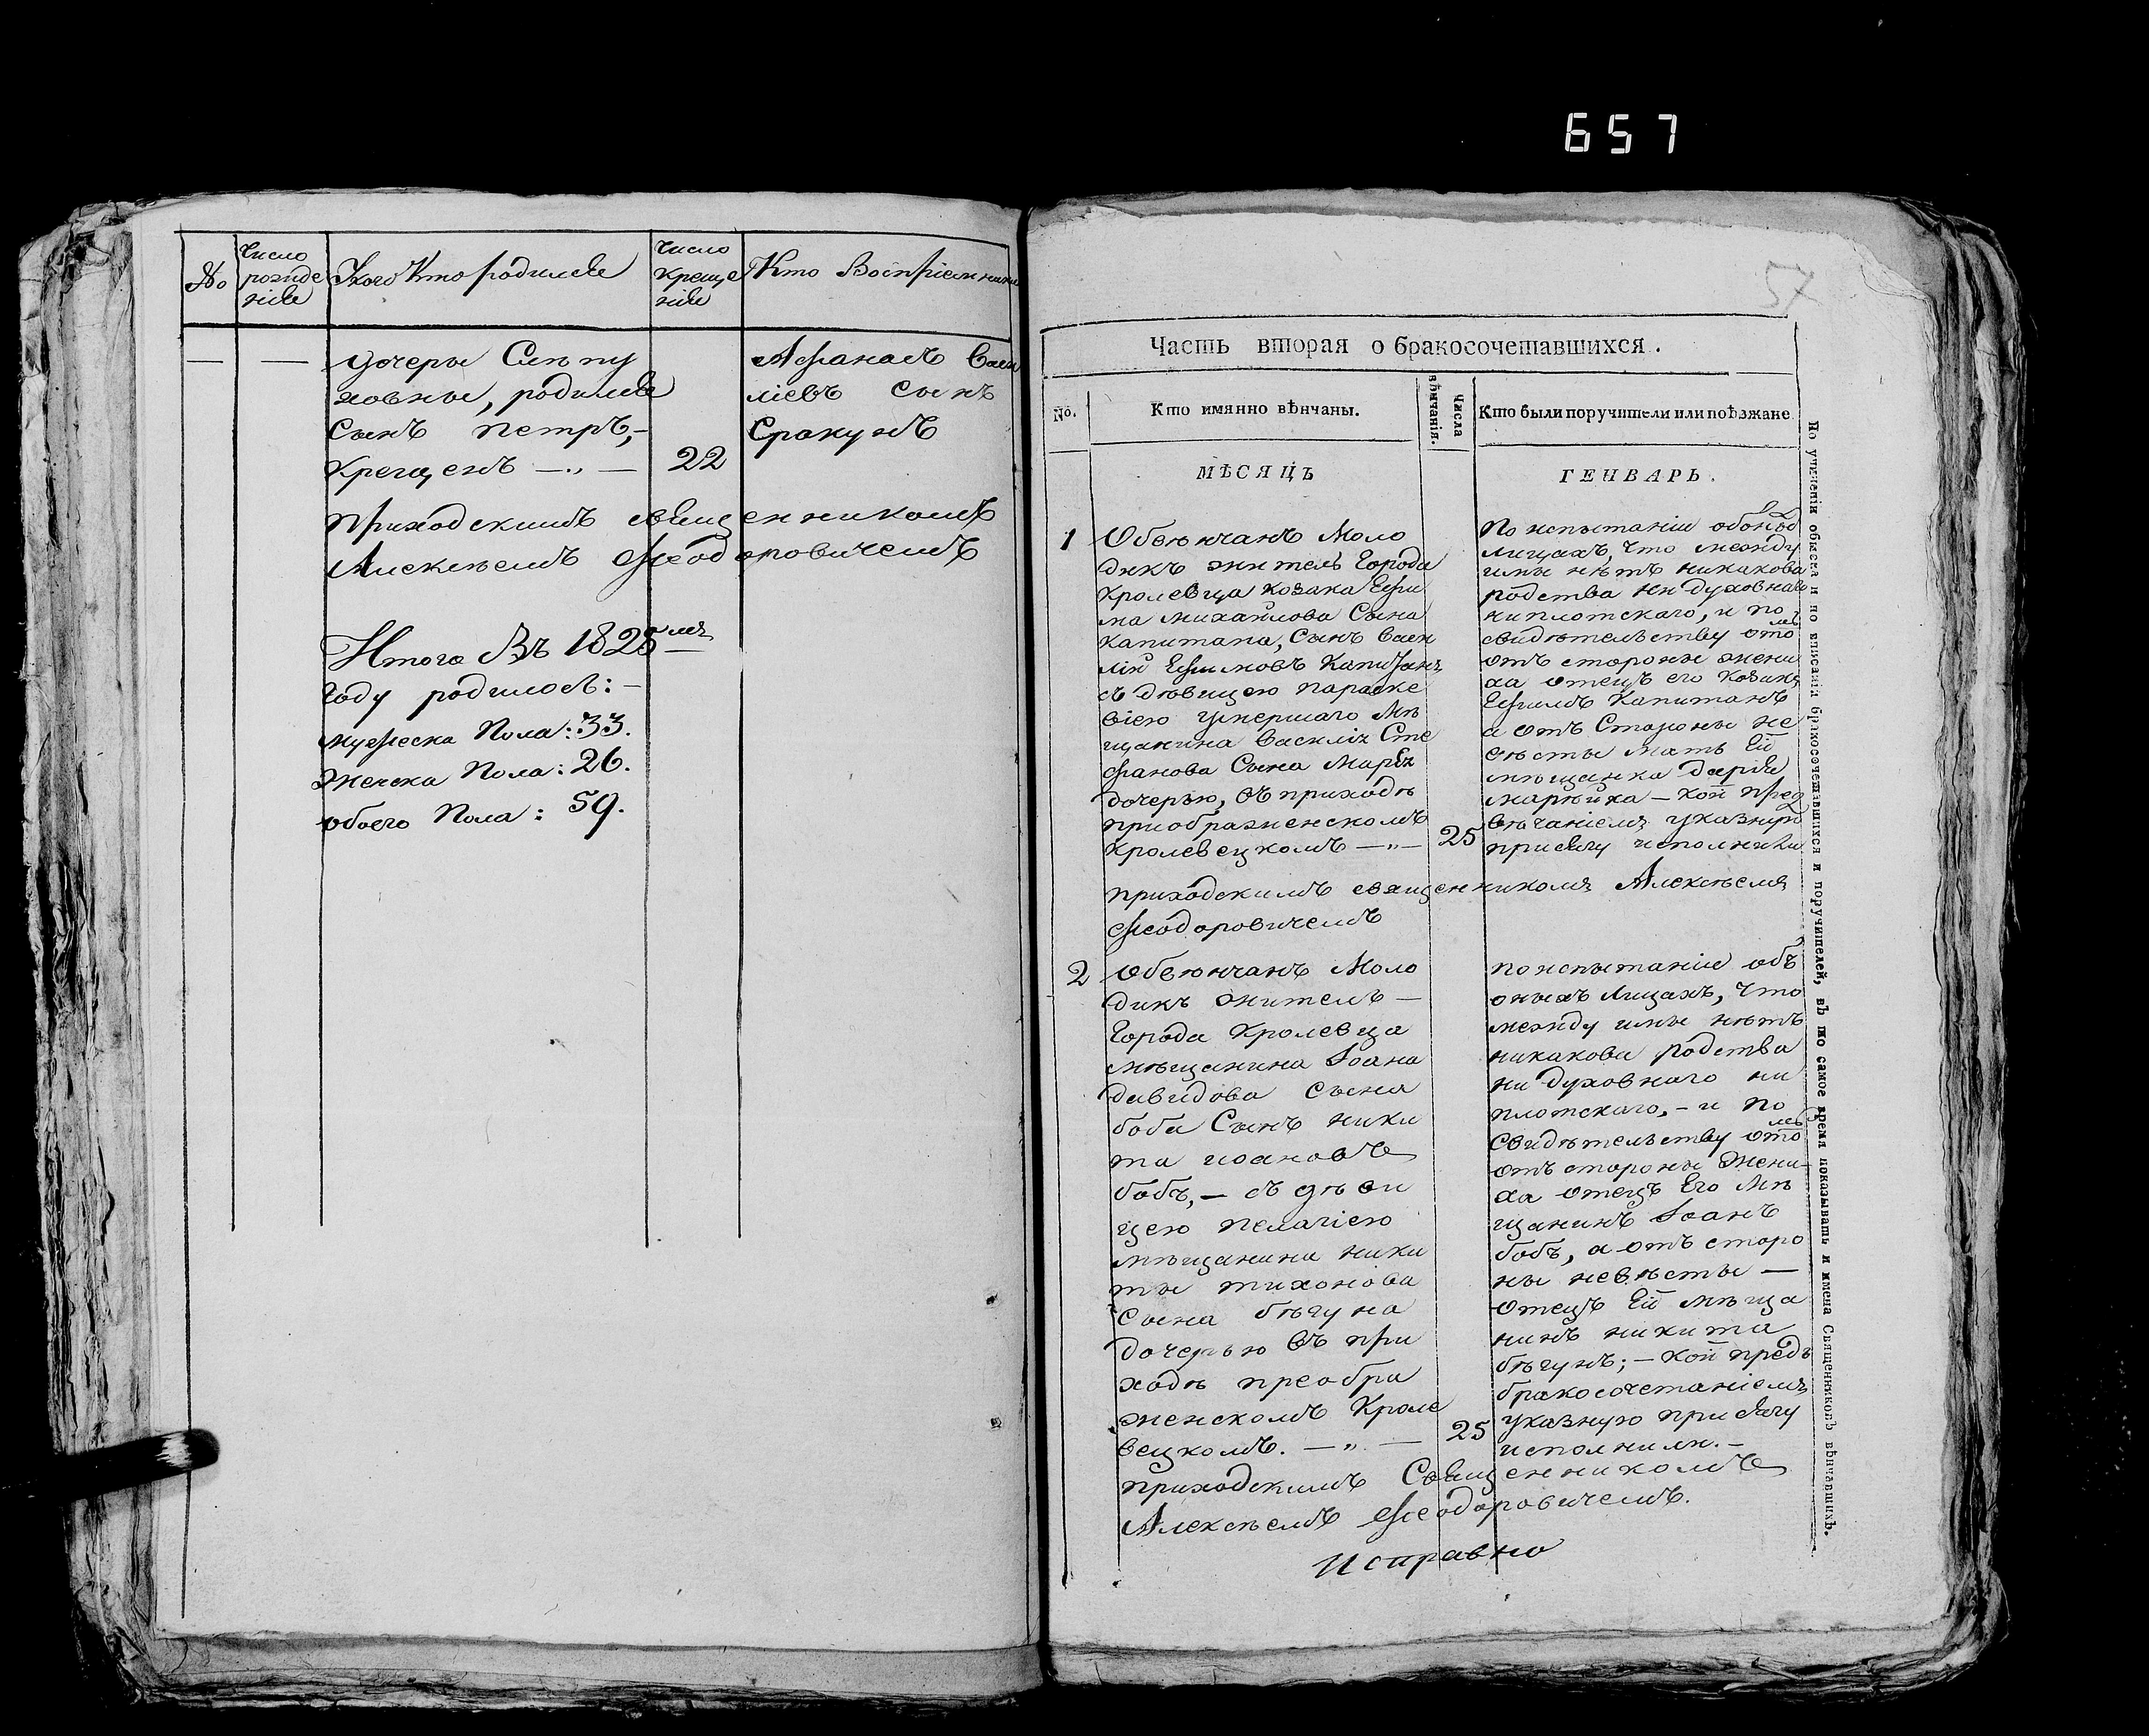 657
№
Число рожденія
У кого кто родился
Число крещенія
Кто Воспріемники
дочеры Слѣпу
ховны, родился
Сынъ петръ,-
Крещенъ — „ —
22
Афанасъ Васи
ліевъ сынъ
Сракунъ
приходскимъ священникомъ
Алексѣемъ Феодоровичемъ
Итого Въ 1825мъ
году родилось: —
мужеска Пола: 33.
Женска Пола: 26.
обоего Пола: 59.
57
Часть вторая о бракосочетавшихся.
No.
Кто имянно вѣнчаны.
Числа вѣнчанія.
Кто были поручители или поѣзжане
МѢСЯЦЪ
ГЕНВАРЬ.
1
Обвѣнчанъ Моло
дикъ житель Города
Кролевца козака Ефи
ма михайлова Сына
Капитана, Сынъ Васи
лій Ефимовъ Капитанъ
съ дѣвицею параске
віею умершаго мѣ
щанина Василія Сте
фанова Сына
дочерью, въ приходѣ
приображенскомъ
Кролевецкомъ — „ —
25
По испытаніи обоныхъ
лицахъ, что между
имы нѣтъ никакова
родства ни духовнаго
ни плотскаго, и по
свидѣтельству
отъ стороны жени
ха отецъ его козакъ
Ефимъ Капитанъ
а отъ Стороны не
вѣсты мать Ей
мѣщанка дарія
марѣиха — кой пред
вѣчаніемъ указную
присягу исполнили
приходскимъ священникомъ Алексѣемъ
Феодоровичемъ
2
обвѣнчанъ Моло
дикъ житель —
Города Кролевца
мѣщанина Іоана
давидова Сына
боба Сынъ ники
та иоановъ
бобъ, — съ дѣви
цею пелагіею
мѣщанина ники
ты тихонова
Сына бѣгуна
дочерью въ при
ходѣ преобра
женскомъ Кроле
вецкомъ. — „ —
25
по испытаніи объ
оныхъ лицахъ, что
между имы нѣтъ
никакова родства
ни духовнаго ни
плотскаго, — и по
Свидѣтельству
отъ стороны жени-
ха отецъ Его мѣ
щанинъ Іоанъ
бобъ, а отъ сторо
ны невѣсты —
отецъ Ей мѣща
нинъ никита
бѣгунъ; — кой предъ
бракосочетаніемъ
указную присягу
исполнили. —
приходскимъ Священникомъ
Алексѣемъ Феодоровичемъ.
Исправно
По учиненіи обыска и по вписаніи бракосочетавшихся и поручителей, въ то самое время показывать и имена Священниковъ вѣнчавшихъ.